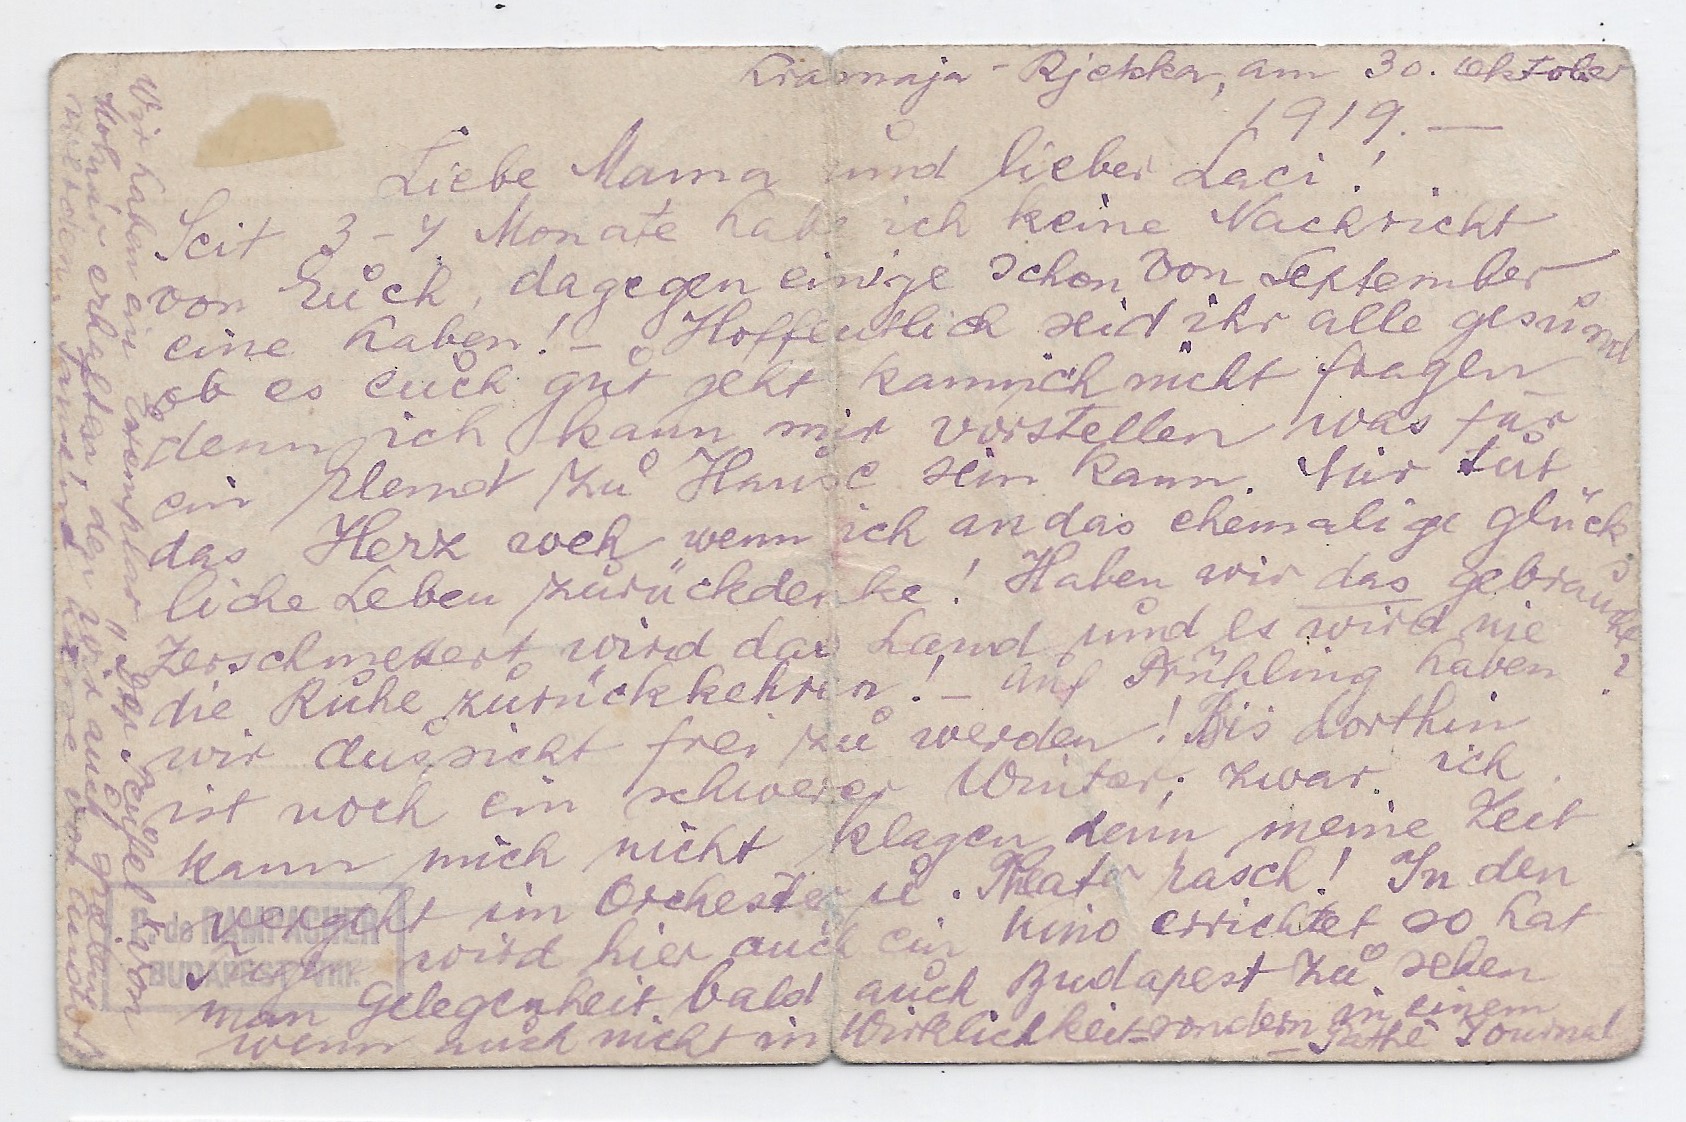 Krasnaja-Rjetska, am 30. Oktober
1919. —
Liebe Mama und lieber Laci!
Seit 3-4 Monate habe ich keine Nachricht
von Euch, dagegen einige schon von September
eine haben! – Hoffentlich seid ihr alle gesund
ob es euch gut geht kann ich nicht fragen
denn ich kann mir vorstellen was für
ein Elend zu Hause sein kann. Mir tut
das Herz weh wenn ich an das ehemalige glück
liche Leben zurückdenke! Haben wir das gebraucht?
Zerschmettert wird das Land und es wird nie
die Ruhe zurückkehren! – Auf Frühling haben
wir aussicht frei zu werden! Bis dorthin
ist noch ein schwerer Winter; zwar ich
kann mich nicht klagen denn meine Zeit
vergeht im Orchester u. Theater rasch! In den
Tagen wird hier auch ein Kino errichtet so hat
man Gelegenheit bald auch Budapest zu sehen
wenn auch nicht in Wirklichkeit – sondern in einem
– Pathé Journal
Wir haben ein Exemplar "Der Teufel" von
Molnár erhalten den wir auch
P. de RAMPACHER
BUDAPEST